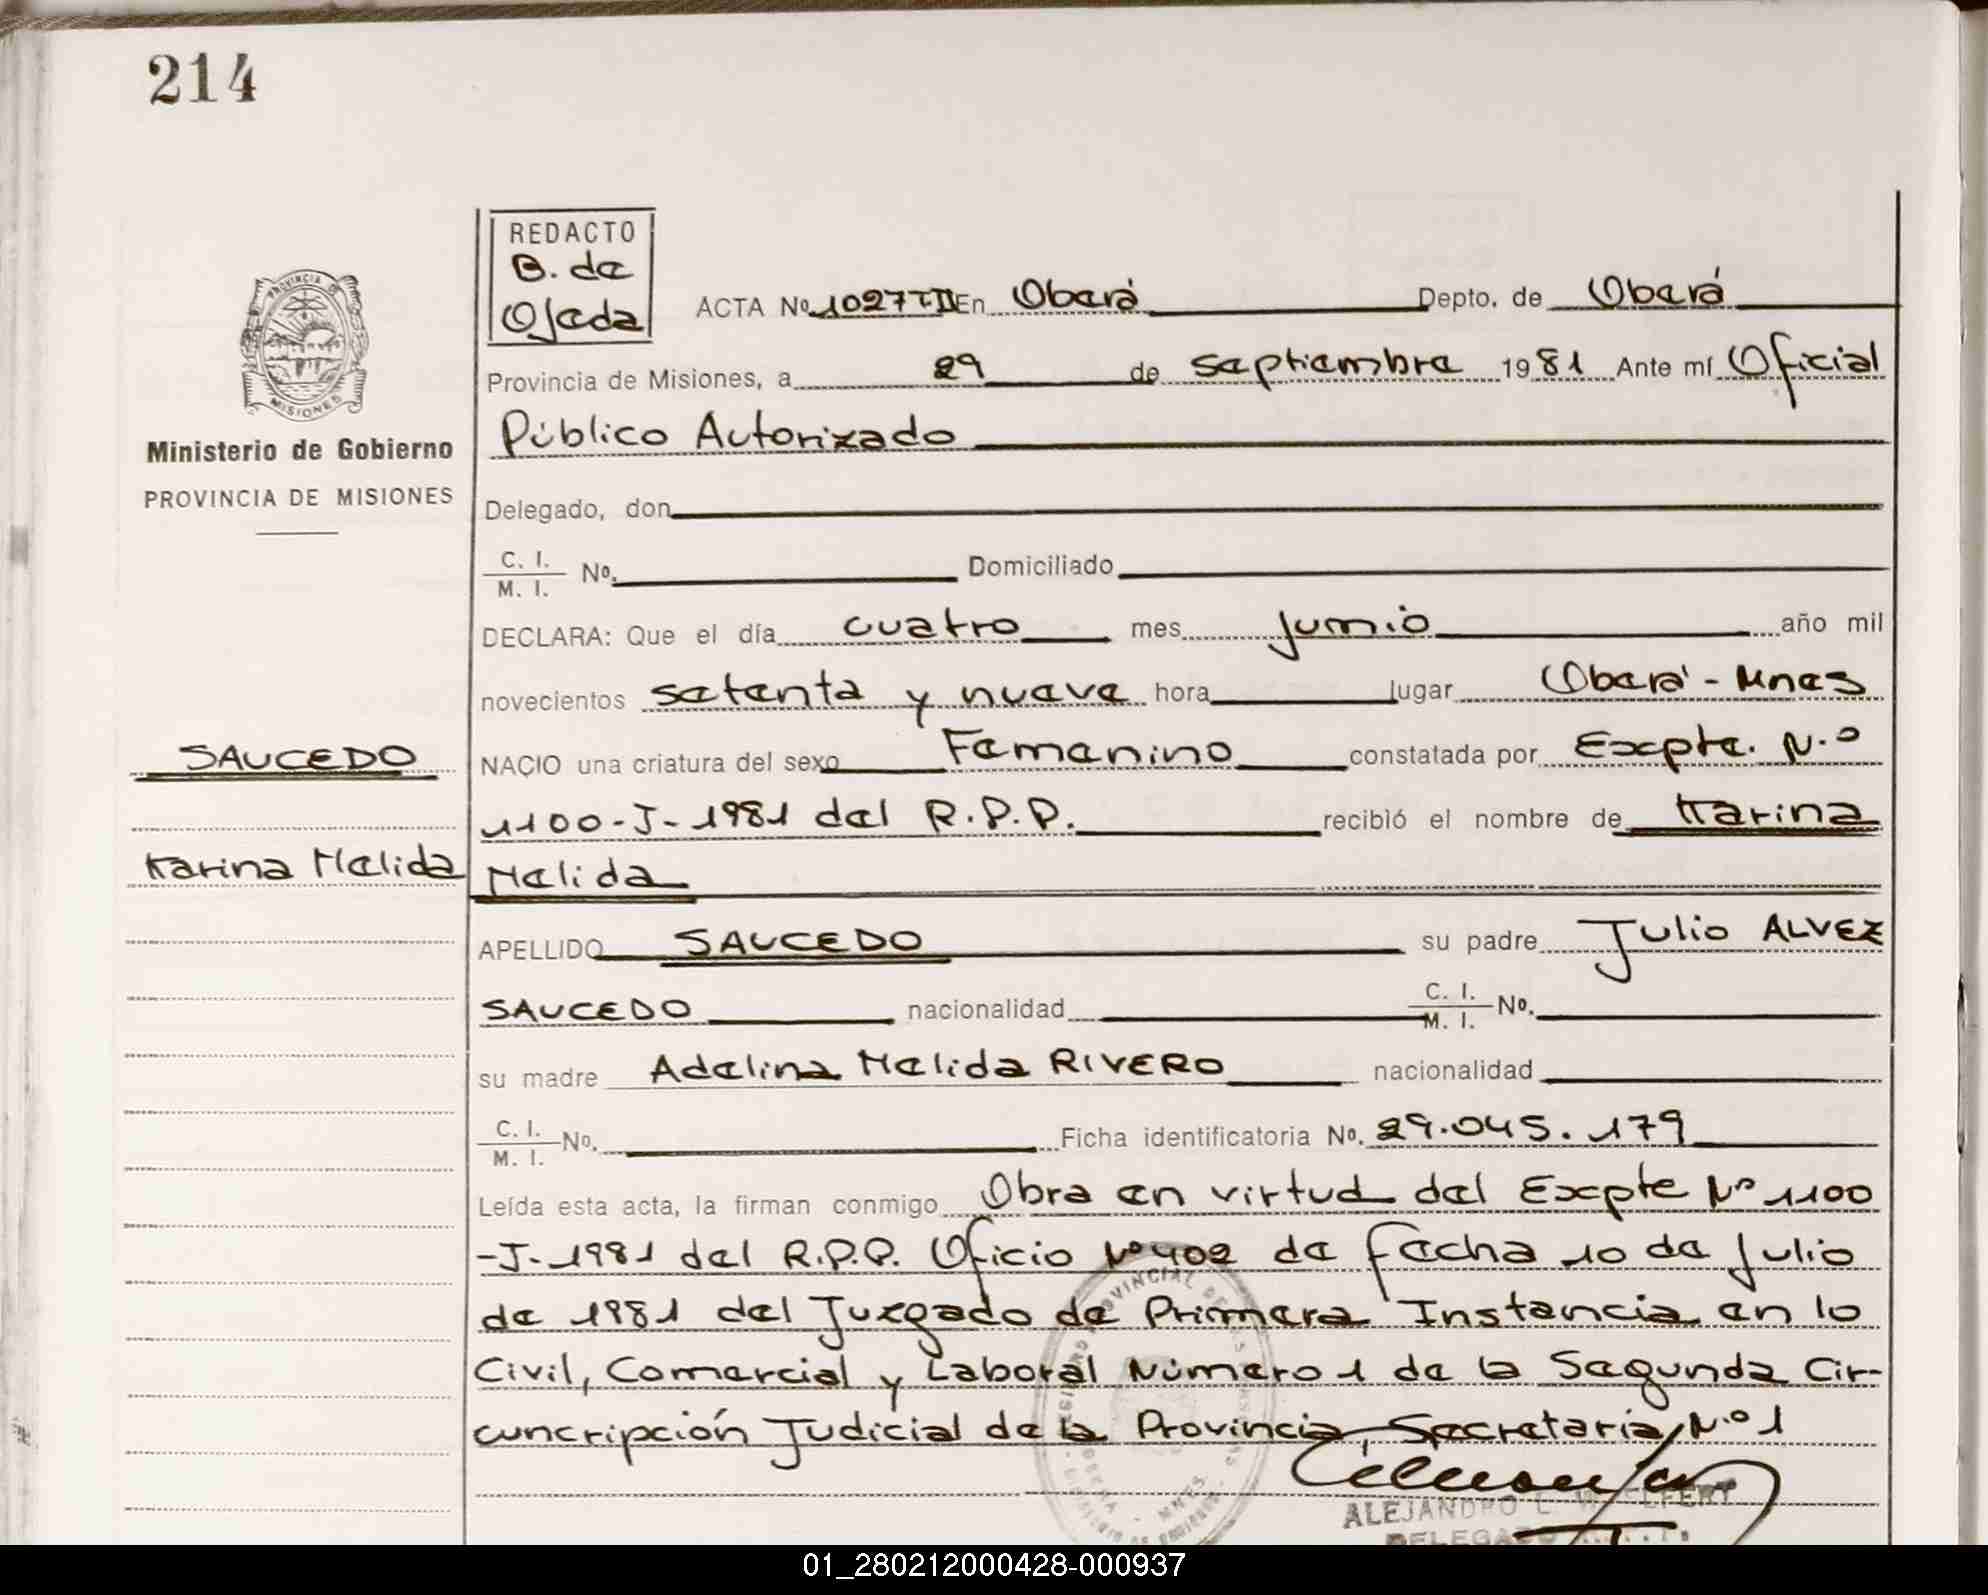 214
REDACTO
B. de
Ojeda
PROVINCIA DE
MISIONES
ACTA Nº 1027-T-II En Oberá Depto. de Oberá
Provincia de Misiones, a 29 de septiembre 1981 Ante mí Oficial
Público Autorizado
Ministerio de Gobierno
PROVINCIA DE MISIONES
Delegado, don
C. I.
M. I. Nº. Domiciliado
DECLARA: Que el día cuatro mes junio año mil
novecientos setenta y nueve hora lugar Oberá - Mnes
SAUCEDO
NACIO una criatura del sexo Femenino constatada por Expte. N.º
1100-J-1981 del R.P.P. recibió el nombre de Karina
Karina Nelida
Nelida
APELLIDO SAUCEDO su padre Julio ALVEZ
SAUCEDO nacionalidad C. I. M. I. Nº.
su madre Adelina Nelida RIVERO nacionalidad
C. I.
M. I. Nº. Ficha identificatoria Nº. 29.045.179
Leída esta acta, la firman conmigo Obra en virtud del Expte Nº 1100
-J-1981 del R.P.P. Oficio Nº 402 de fecha 10 de julio
de 1981 del Juzgado de Primera Instancia en lo
Civil, Comercial y Laboral Número 1 de la Segunda Cir-
cuncripción Judicial de la Provincia, Secretaría N.º 1
ALEJANDRO
DELEGADO
01_280212000428-000937